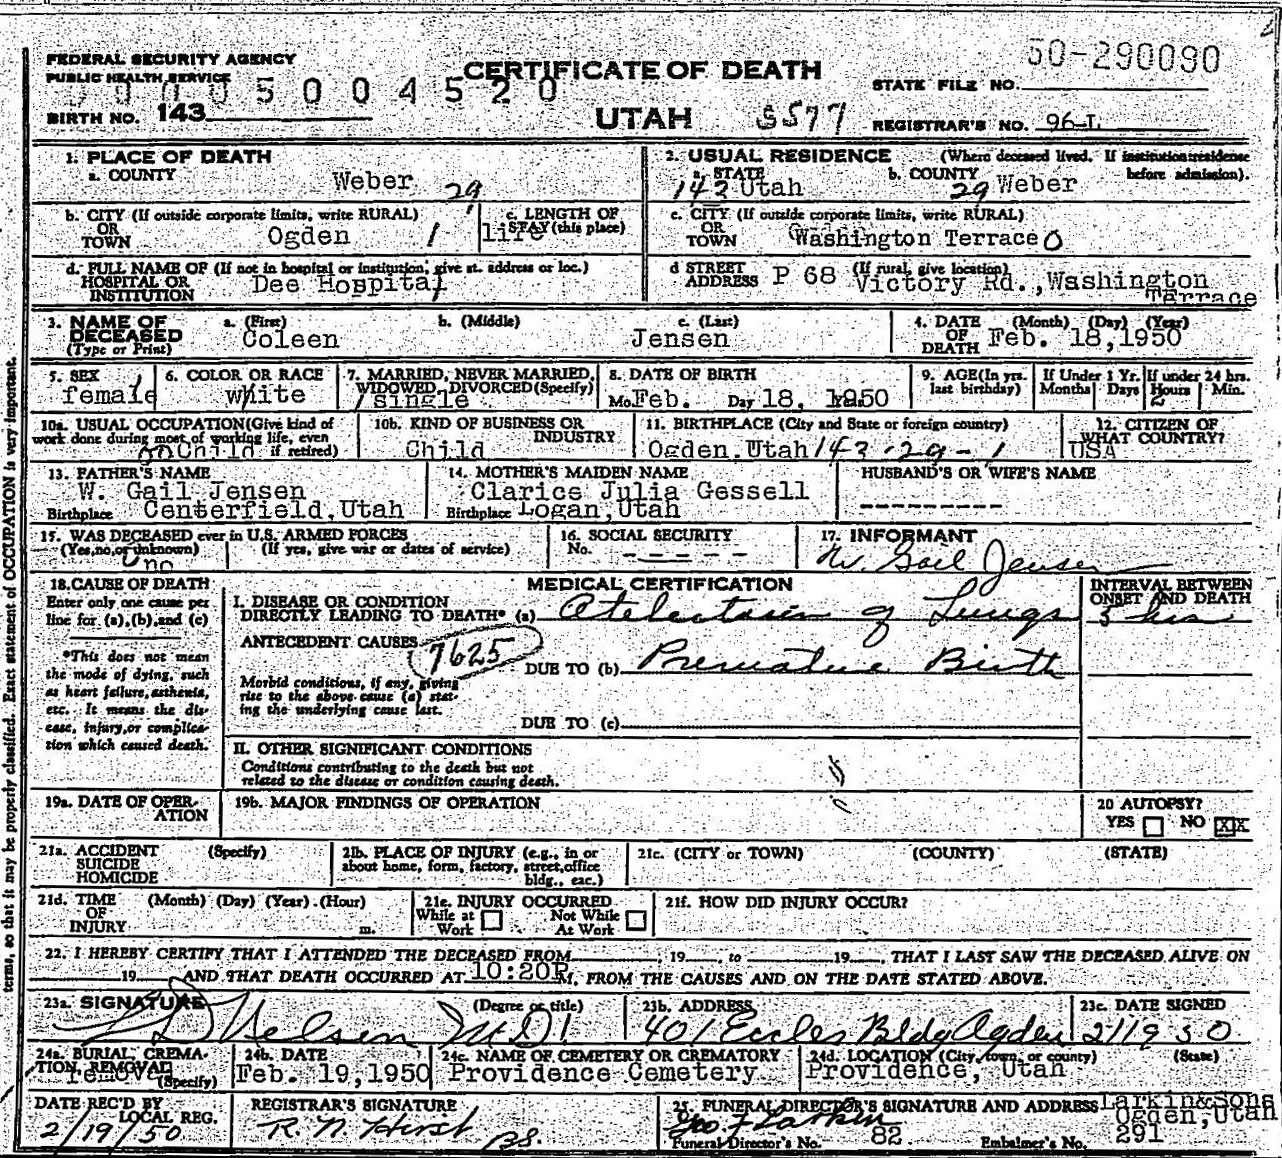 FEDERAL SECURITY AGENCY
PUBLIC HEALTH SERVICE
BIRTH NO. 143
005004520
CERTIFICATE OF DEATH
UTAH
3577
50-290090
STATE FILE NO.
REGISTRAR'S NO. 96-L
1. PLACE OF DEATH
a. COUNTY Weber 29
2. USUAL RESIDENCE (Where deceased lived. If institution: residence before admission).
a. STATE 143 Utah b. COUNTY 29 Weber
b. CITY (If outside corporate limits, write RURAL) OR TOWN Ogden 1
c. LENGTH OF STAY (this place) life
c. CITY (If outside corporate limits, write RURAL) OR TOWN Washington Terrace 0
d. FULL NAME OF (If not in hospital or institution, give st. address or loc.) HOSPITAL OR INSTITUTION Dee Hospital
d STREET ADDRESS (If rural, give location) P 68 Victory Rd., Washington Terrace
3. NAME OF DECEASED (Type or Print)
a. (First) Coleen b. (Middle) c. (Last) Jensen
4. DATE OF DEATH (Month) (Day) (Year) Feb. 18, 1950
5. SEX female
6. COLOR OR RACE white
7. MARRIED, NEVER MARRIED, WIDOWED, DIVORCED (Specify) single
8. DATE OF BIRTH Mo. Feb. Day 18, 1950
9. AGE (In yrs. last birthday) If Under 1 Yr. Months Days If under 24 hrs. Hours Min.
10a. USUAL OCCUPATION (Give kind of work done during most of working life, even if retired) Child
10b. KIND OF BUSINESS OR INDUSTRY Child
11. BIRTHPLACE (City and State or foreign country) Ogden, Utah 143-29-1
12. CITIZEN OF WHAT COUNTRY? USA
13. FATHER'S NAME W. Gail Jensen
Birthplace Centerfield, Utah
14. MOTHER'S MAIDEN NAME Clarice Julia Gessell
Birthplace Logan, Utah
HUSBAND'S OR WIFE'S NAME ---------
15. WAS DECEASED ever in U.S. ARMED FORCES
(Yes, no, or unknown) (If yes, give war or dates of service)
no
16. SOCIAL SECURITY No. - - - - -
17. INFORMANT W. Gail Jensen
18. CAUSE OF DEATH
Enter only one cause per line for (a), (b), and (c)
*This does not mean the mode of dying, such as heart failure, asthenia, etc. It means the disease, injury, or complication which caused death.
MEDICAL CERTIFICATION
INTERVAL BETWEEN ONSET AND DEATH
I. DISEASE OR CONDITION DIRECTLY LEADING TO DEATH* (a) Atelectasis of Lungs 3 hrs
ANTECEDENT CAUSES 7625
DUE TO (b) Premature Birth
Morbid conditions, if any, giving rise to the above cause (a) stating the underlying cause last.
DUE TO (c)
II. OTHER SIGNIFICANT CONDITIONS
Conditions contributing to the death but not related to the disease or condition causing death.
19a. DATE OF OPERATION
19b. MAJOR FINDINGS OF OPERATION
20 AUTOPSY?
YES NO XX
21a. ACCIDENT SUICIDE HOMICIDE (Specify)
21b. PLACE OF INJURY (e.g., in or about home, form, factory, street, office bldg., eac.)
21c. (CITY or TOWN) (COUNTY) (STATE)
21d. TIME OF INJURY (Month) (Day) (Year) (Hour) m.
21e. INJURY OCCURRED
While at Work Not While At Work
21f. HOW DID INJURY OCCUR?
22. I HEREBY CERTIFY THAT I ATTENDED THE DECEASED FROM , 19 , to 19 , THAT I LAST SAW THE DECEASED ALIVE ON
19 AND THAT DEATH OCCURRED AT 10:20P M, FROM THE CAUSES AND ON THE DATE STATED ABOVE.
23a. SIGNATURE (Degree or title) Nelson M.D.
23b. ADDRESS 401 Eccles Bldg Ogden
23c. DATE SIGNED 2/19 50
24a. BURIAL, CREMATION, REMOVAL (Specify) removal
24b. DATE Feb. 19, 1950
24c. NAME OF CEMETERY OR CREMATORY Providence Cemetery
24d. LOCATION (City, town, or county) (State) Providence, Utah
DATE REC'D BY LOCAL REG. 2/19/50
REGISTRAR'S SIGNATURE R. N. Hirst BS.
25. FUNERAL DIRECTOR'S SIGNATURE AND ADDRESS Larkin & Sons Ogden, Utah
Geo F Larkin
Funeral Director's No. 82. Embalmer's No. 291
terms, so that it may be properly classified. Exact statement of OCCUPATION is very important.